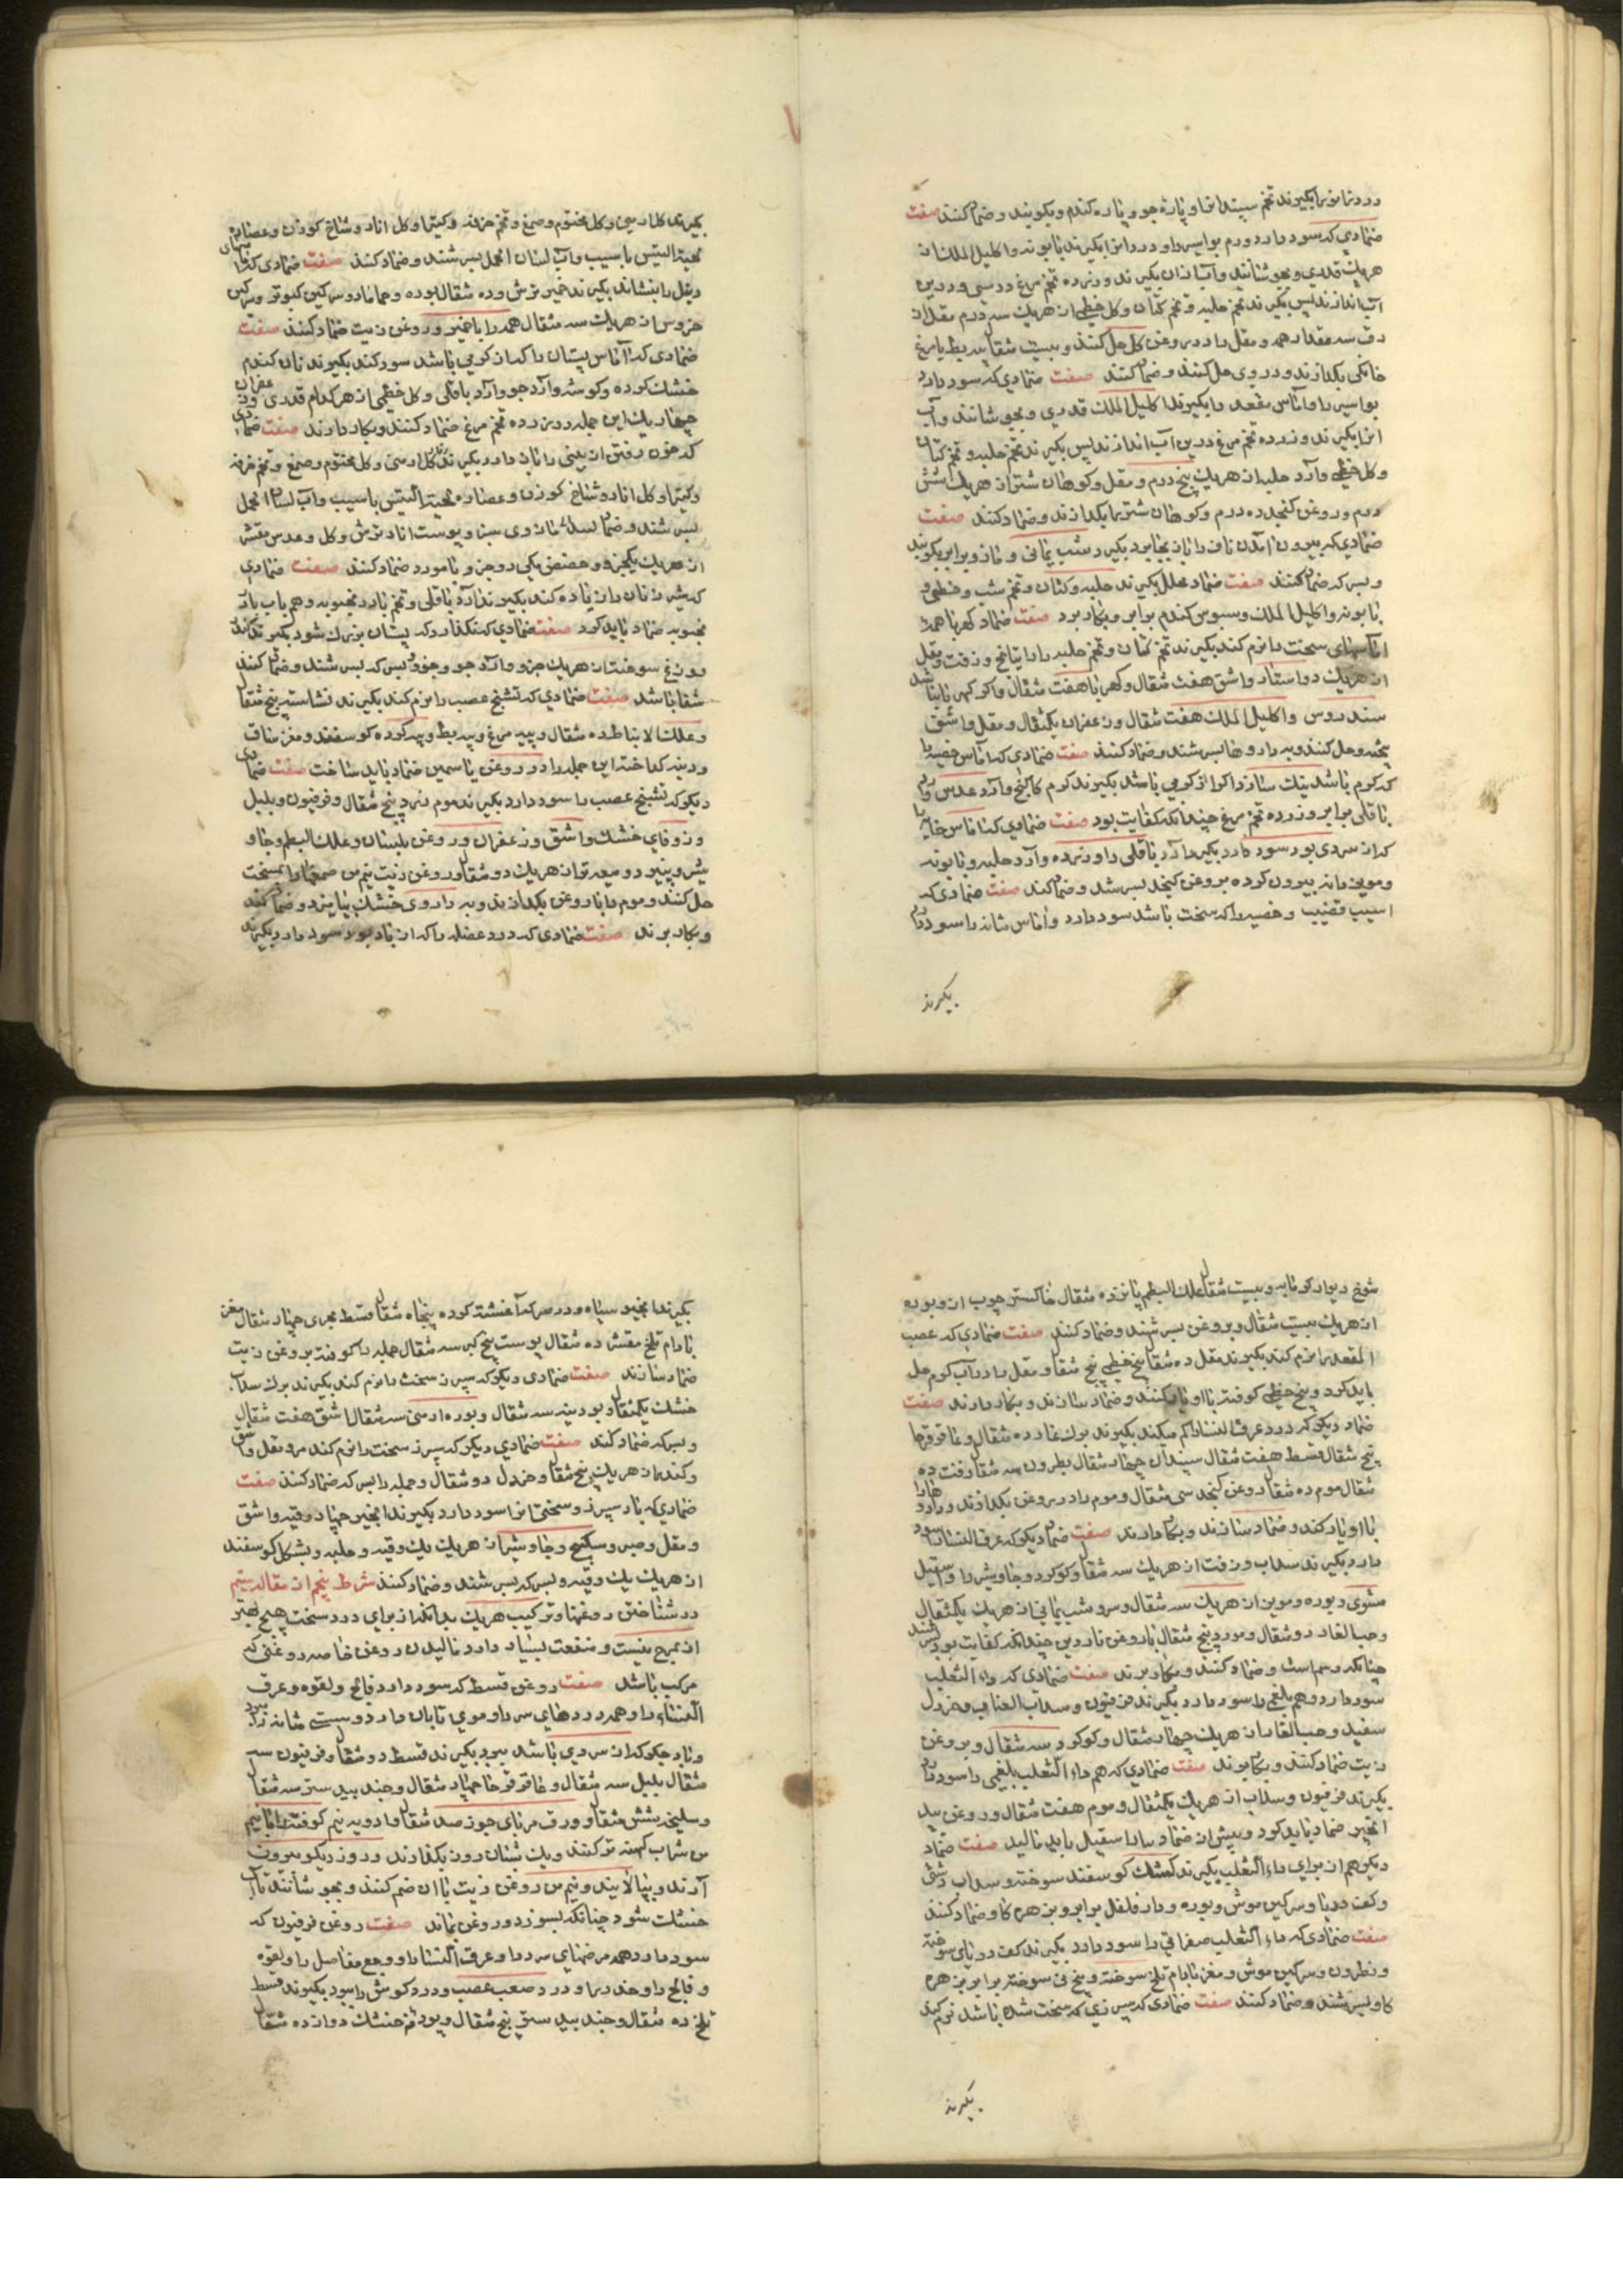 درد زانو را بگیرند تخم سپندان و پاره جو و پاره کندم و بکوبند و ضماد کنند صفت
ضمادی که سود دارد ورم بواسیر را و درد انرا بگیرند بابونه و اکلیل الملک از
هریک قدری و بجوشانند و آب از ان بگیرند و زرده تخم مرغ درستی و درین
آب اندازند پس بگیرند تخم حلبه و تخم کتان و کل خطمی از هریک سه درم مقل از
خانکی بکدازند و در وی حل کنند و ضماد کنند صفت ضمادی که سود دارد
بواسیر را و آماس مقعد را بگیرند اکلیل الملک قدری و بجوشانند و آب
انرا بگیرند و زرده تخم مرغ درین آب اندازند پس بگیرند تخم حلبه و تخم کتان
و کل خطمی و آرد حلبه از هریک پنج درم و مقل و کوهان شتر از هریک شش
درم و روغن کنجد ده درم و کوهان شتر را بکدازند و ضماد کنند صفت
ضمادی که بیرون آمدن ناف را باز بجا برد بگیرد شب یمانی و مازو برابر بکوبند
و بسرکه ضماد کنند صفت ضماد محلل بگیرند حلبه و کتان و تخم شبت و خطمی و
بابونه و اکلیل الملک و سبوس کندم برابر و بکار برد صفت ضماد کهربا همه
آماسهای سخت را نرم کند بگیرند تخم کتان و تخم حلبه و راتیانج و زفت و مقل
از هریک دو استار و اشق هفت مثقال و کهربا هفت مثقال
سندروس و اکلیل الملک هفت مثقال و زعفران یکمثقال و مقل و اشق
پخته و حل کنند و به داروها بسرشند و ضماد کنند صفت ضمادی که آماس خصیه را
که کرم باشد نیک سازد اکر از کرمی باشد بگیرند کرم کاکنج و آرد عدس و آرد
باقلی برابر و زرده تخم مرغ چندانکه کفایت بود صفت ضمادی که آماس خایه را
که از سردی بود سود دارد بگیر آرد باقلی را و زیره و آرد حلبه و بابونه
و مویز دانه بیرون کرده بروغن کنجد بسرشد و ضماد کند صفت ضمادی که
اسیب قضیب و خصیه را که سخت باشد سود دارد و آماس مثانه را سود دارد
بگیرند
بگیرند کل ارمنی و کل مختوم و صمغ و تخم خرفه و کتیرا و کل انار و شاخ کوزن و عصاره
لحیة التیس با سیب و آب لسان الحمل بسرشند و ضماد کنند صفت ضمادی که
بغل را بنشاند بگیرند خمیر ترش و ده مثقال بوره و حماما و سرکین کبوتر و سرکین
خروس از هریک سه مثقال همه را با خمیر و روغن زیت ضماد کنند صفت
ضمادی که آماس پستان را که از کرمی باشد سود کند بگیرند نان کندم
خشک کرده و کوشه و آرد جو و آرد باقلی و کل خطمی از هر کدام قدری و زعفران
چهار یک این جمله در زرده تخم مرغ ضماد کنند و بکار دارند صفت ضمادی
که خون رفتن از بینی را باز دارد بگیرند کل ارمنی و کل مختوم و صمغ و تخم خرفه
و کتیرا و کل انار و شاخ کوزن و عصاره لحیة التیس با سیب و آب لسان الحمل
بسرشند و ضماد مازوی سبز و پوست انار ترش و کل و عدس مقشر
از هریک یکجزو و حضض مکی دو جزو با مورد ضماد کنند صفت ضمادی
که شیر زنان را زیاده کند بگیرند آرد باقلی و تخم
ضماد باید کرد صفت ضمادی که نکذارد که پستان بزرک شود بگیرند
سوخته از هریک جزو و آرد جو و جزو بسرکه بسرشند و ضماد کنند
شفا باشد صفت ضمادی که تشنج عصب را نرم کند بگیرند نشاسته پنج مثقال
و علک الانباط ده مثقال و پیه مرغ و پیه بط و پیه کرده کوسفند و مغز ساق
کداخته این جمله را در روغن یاسمین ضماد باید ساخت صفت ضمادی
دیکر که تشنج عصب را سود دارد بگیرند موم زرد پنج مثقال و فرفیون و پلپل
و زوفای خشک و اشق و زعفران و روغن بلسان و علک البطم و جاو
شیر از هریک دو مثقال و روغن زیت نیم من
حل کنند و موم را با روغن بکدازند و به داروی خشک بیامیزد و ضماد کنند
و بکار برند صفت ضمادی که درد عضله را که از باد بود سود دارد بگیرند
شوخ دیوار کرمابه و بیست مثقال علک البطم پانزده مثقال خاکستر چوب
از هریک بیست مثقال و بروغن بسرشند و ضماد کنند صفت ضمادی که عصب
المقعد را نرم کند بگیرند مقل ده مثقال بیخ خطمی پنج مثقال و مقل را در آب کرم حل
باید کرد و بیخ خطمی کوفته با او یار کنند و ضماد سازند و بکار دارند صفت
ضماد دیکر که درد عرق النسا را کم میکند بگیرند برک غار ده مثقال و عاقرقرحا
پنج مثقال قسط هفت مثقال سپندان چهار مثقال نطرون سه مثقال زفت ده
مثقال موم ده مثقال روغن کنجد سی مثقال و موم را در روغن بکدازند و داروها را
با او یار کند و ضماد سازند و بکار دارند صفت ضماد دیکر که عرق النسا را سود
دارد بگیرند سداب و زفت از هریک سه مثقال و کوکرد و جاوشیر و اسقیل
مشوی و بوره و مویز از هریک سه مثقال و سرو شب یمانی از هریک یکمثقال
و حب الغار دو مثقال و مورد پنج مثقال با روغن ناردین چندانکه کفایت بود بسرشند
چنانکه رسم است و ضماد کنند و بکار برند صفت ضمادی که داء الثعلب
سود دارد و هم بلغمی را سود دارد بگیرند فرفیون و سداب و خردل
سفید و حب الغار از هریک چهار مثقال و کوکرد سه مثقال و بروغن
زیت ضماد کنند و بکار برند صفت ضمادی که هم داء الثعلب بلغمی را سود دارد
بگیرند فرفیون و سداب از هریک یکمثقال و موم هفت مثقال و روغن بید
انجیر ضماد باید کرد و پیش از ضماد اسقیل باید مالید صفت ضماد
دیکر هم از برای داء الثعلب بگیرند کوسفند سوخته و سداب دشتی
و کف دریا و سرکین موش و بوره و دارفلفل برابر و بزهره کاو ضماد کنند
صفت ضمادی که داء الثعلب صفرایی را سود دارد بگیرند کف دریای سوخته
و نطرون و سرکین موش و مغز بادام تلخ سوخته و بیخ نی سوخته برابر بزهره
کاو بسرشند و ضماد کنند صفت ضمادی که سپرزی که سخت شده باشد نرم کند
بگیرند
بگیرند انجیر سیاه و در سرکه آغشته کرده پنجاه مثقال قسط بحری چهار مثقال مغز
بادام تلخ مقشر ده مثقال پوست بیخ کبر سه مثقال جمله را کوفته بروغن زیت
ضماد سازند صفت ضمادی دیکر که سپرز سخت را نرم کند بگیرند برک سداب
خشک یکمثقال و پودینه سه مثقال و بوره ارمنی سه مثقال اشق هفت مثقال
و بسرکه ضماد کنند صفت ضمادی دیکر که سپرز سخت را نرم کند مر و مقل و اشق
و کندر از هریک پنج مثقال و خردل دو مثقال و جمله را بسرکه ضماد کنند صفت
ضمادی که باد سپرز و سختی انرا سود دارد بگیرند انجیر چهار وقیه و اشق
و مقل و صبر و سکبینج و جاوشیر از هریک یک وقیه و حلبه و پشکل کوسفند
از هریک یک وقیه و بسرکه بسرشند و ضماد کنند شرط پنجم از مقاله بیستم
در شناختن روغنها و ترکیب هریک بدانکه از برای درد سخت هیچ بهتر
از تمریخ نیست و منفعت بسیار دارد مالیدن روغن خاصه روغنی که
مرکب باشد صفت روغن قسط که سود دارد فالج و لقوه و عرق
النساء را و همه دردهای سرد را و موی تابان دارد و سستی مثانه
و باد جکر که از سردی باشد ببرد بگیرند قسط دو مثقال و فرفیون سه
مثقال پلپل سه مثقال و عاقرقرحا چهار مثقال و جندبیدستر سه مثقال
و سلیخه شش مثقال و ورق مرزنکوش صد مثقال ادویه نیم کوفته با نیم
من شراب کهنه تر کنند و یک شبان روز بکذارند و روز دیکر بیرون
آرند و بپالایند و نیم من روغن زیت با ان ضم کنند و بجوشانند تا آب
خشک شود چنانکه بسوزد و روغن بماند صفت روغن فرفیون که
سود دارد همه مرضهای سرد را و عرق النسا را و وجع مفاصل را و لقوه
و فالج را و خدر را و درد صعب عصب و درد کوش را ببرد بگیرند قسط
تلخ ده مثقال و جندبیدستر پنج مثقال و پودنه خشک دوازده مثقال